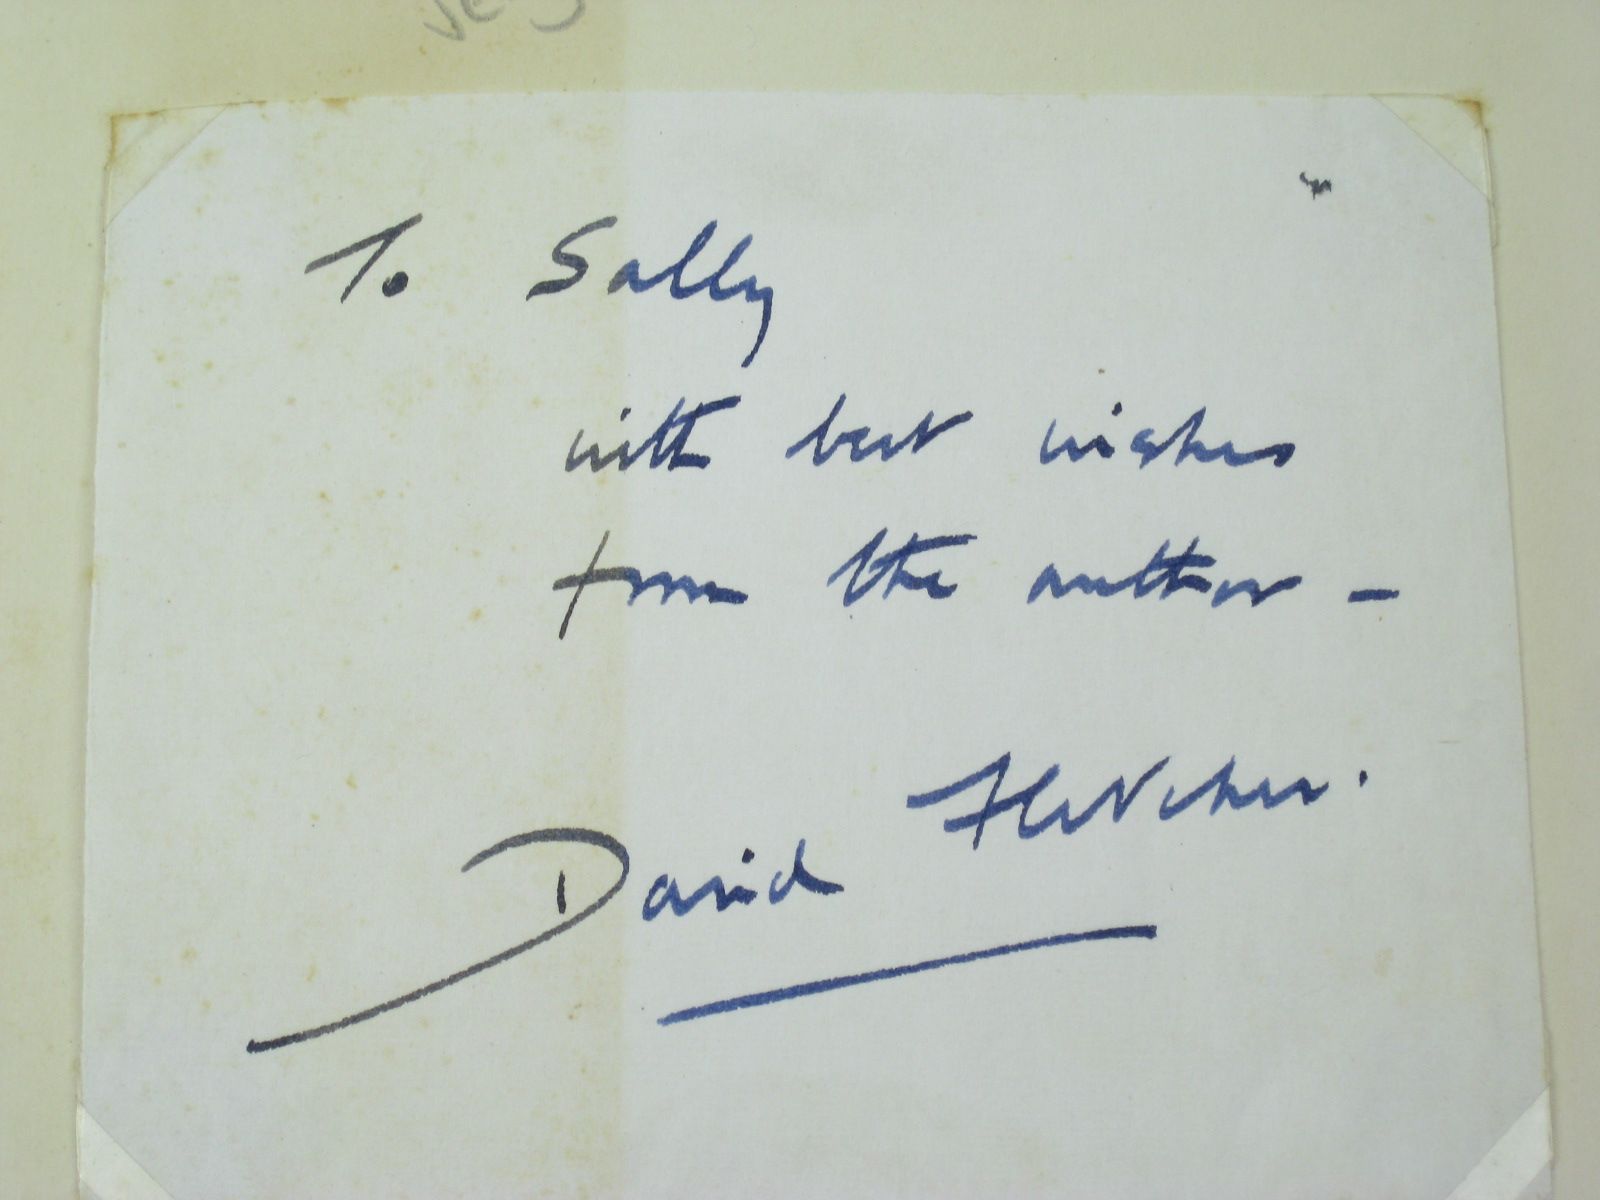 To Sally
with best wishes
from the author -
David Fletcher.